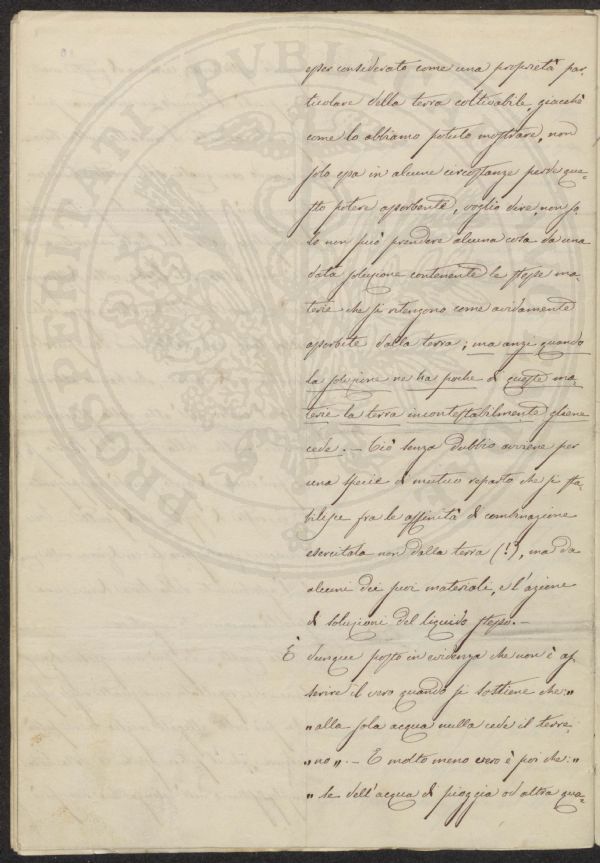 esser considerato come una proprietà par-
ticolare della terra coltivabile, giacchè
come lo abbiamo potuto mostrare, non
solo essa in alcune circostanze perde que-
sto potere assorbente, voglio dire, non so-
lo non può prendere alcuna cosa da una
data soluzione contenente le stesse ma-
terie che si ritengono come avidamente
assorbite dalla terra; ma anzi quando
la soluzione ne ha poche di queste ma-
terie la terra incontestabilmente gliene
cede. — Ciò senza dubbio avviene per
una specie di mutuo reparto che si sta-
bilisce fra le affinità di combinazione
esercitata non dalla terra (!), ma da
alcuni dei suoi materiali, e l'azione
di soluzioni del liquido stesso. —
È dunque posto in evidenza che non è as-
serire il vero quando si sostiene che: „
„ alla sola acqua nulla cede il terre-
„ no „. — E molto meno vero è poi che: „
„ se dell'acqua di pioggia od altra qua-
PROSPERITATI PUBL